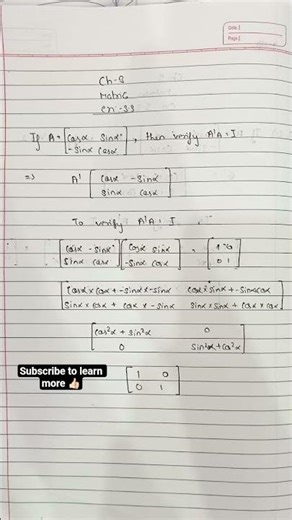 Date
Page
Ch-8
Matric
If A = [cosα sinα
-sinα cosα], then verify A'A = I
⇒ A' [cosα -sinα
sinα cosα]
To verify A'A = I
[cosα -sinα] [cosα sinα] = [1 0]
[sinα cosα] [-sinα cosα] [0 1]
[cosα×cosα+-sinα×-sinα cosα×sinα+-sinαcosα]
[sinα×cosα + cosα×-sinα sinα×sinα+cosα×cosα]
[cos²α + sin²α 0]
[0 sin²α+cos²α]
Subscribe to learn
more 👍🏻
[1 0]
[0 1]